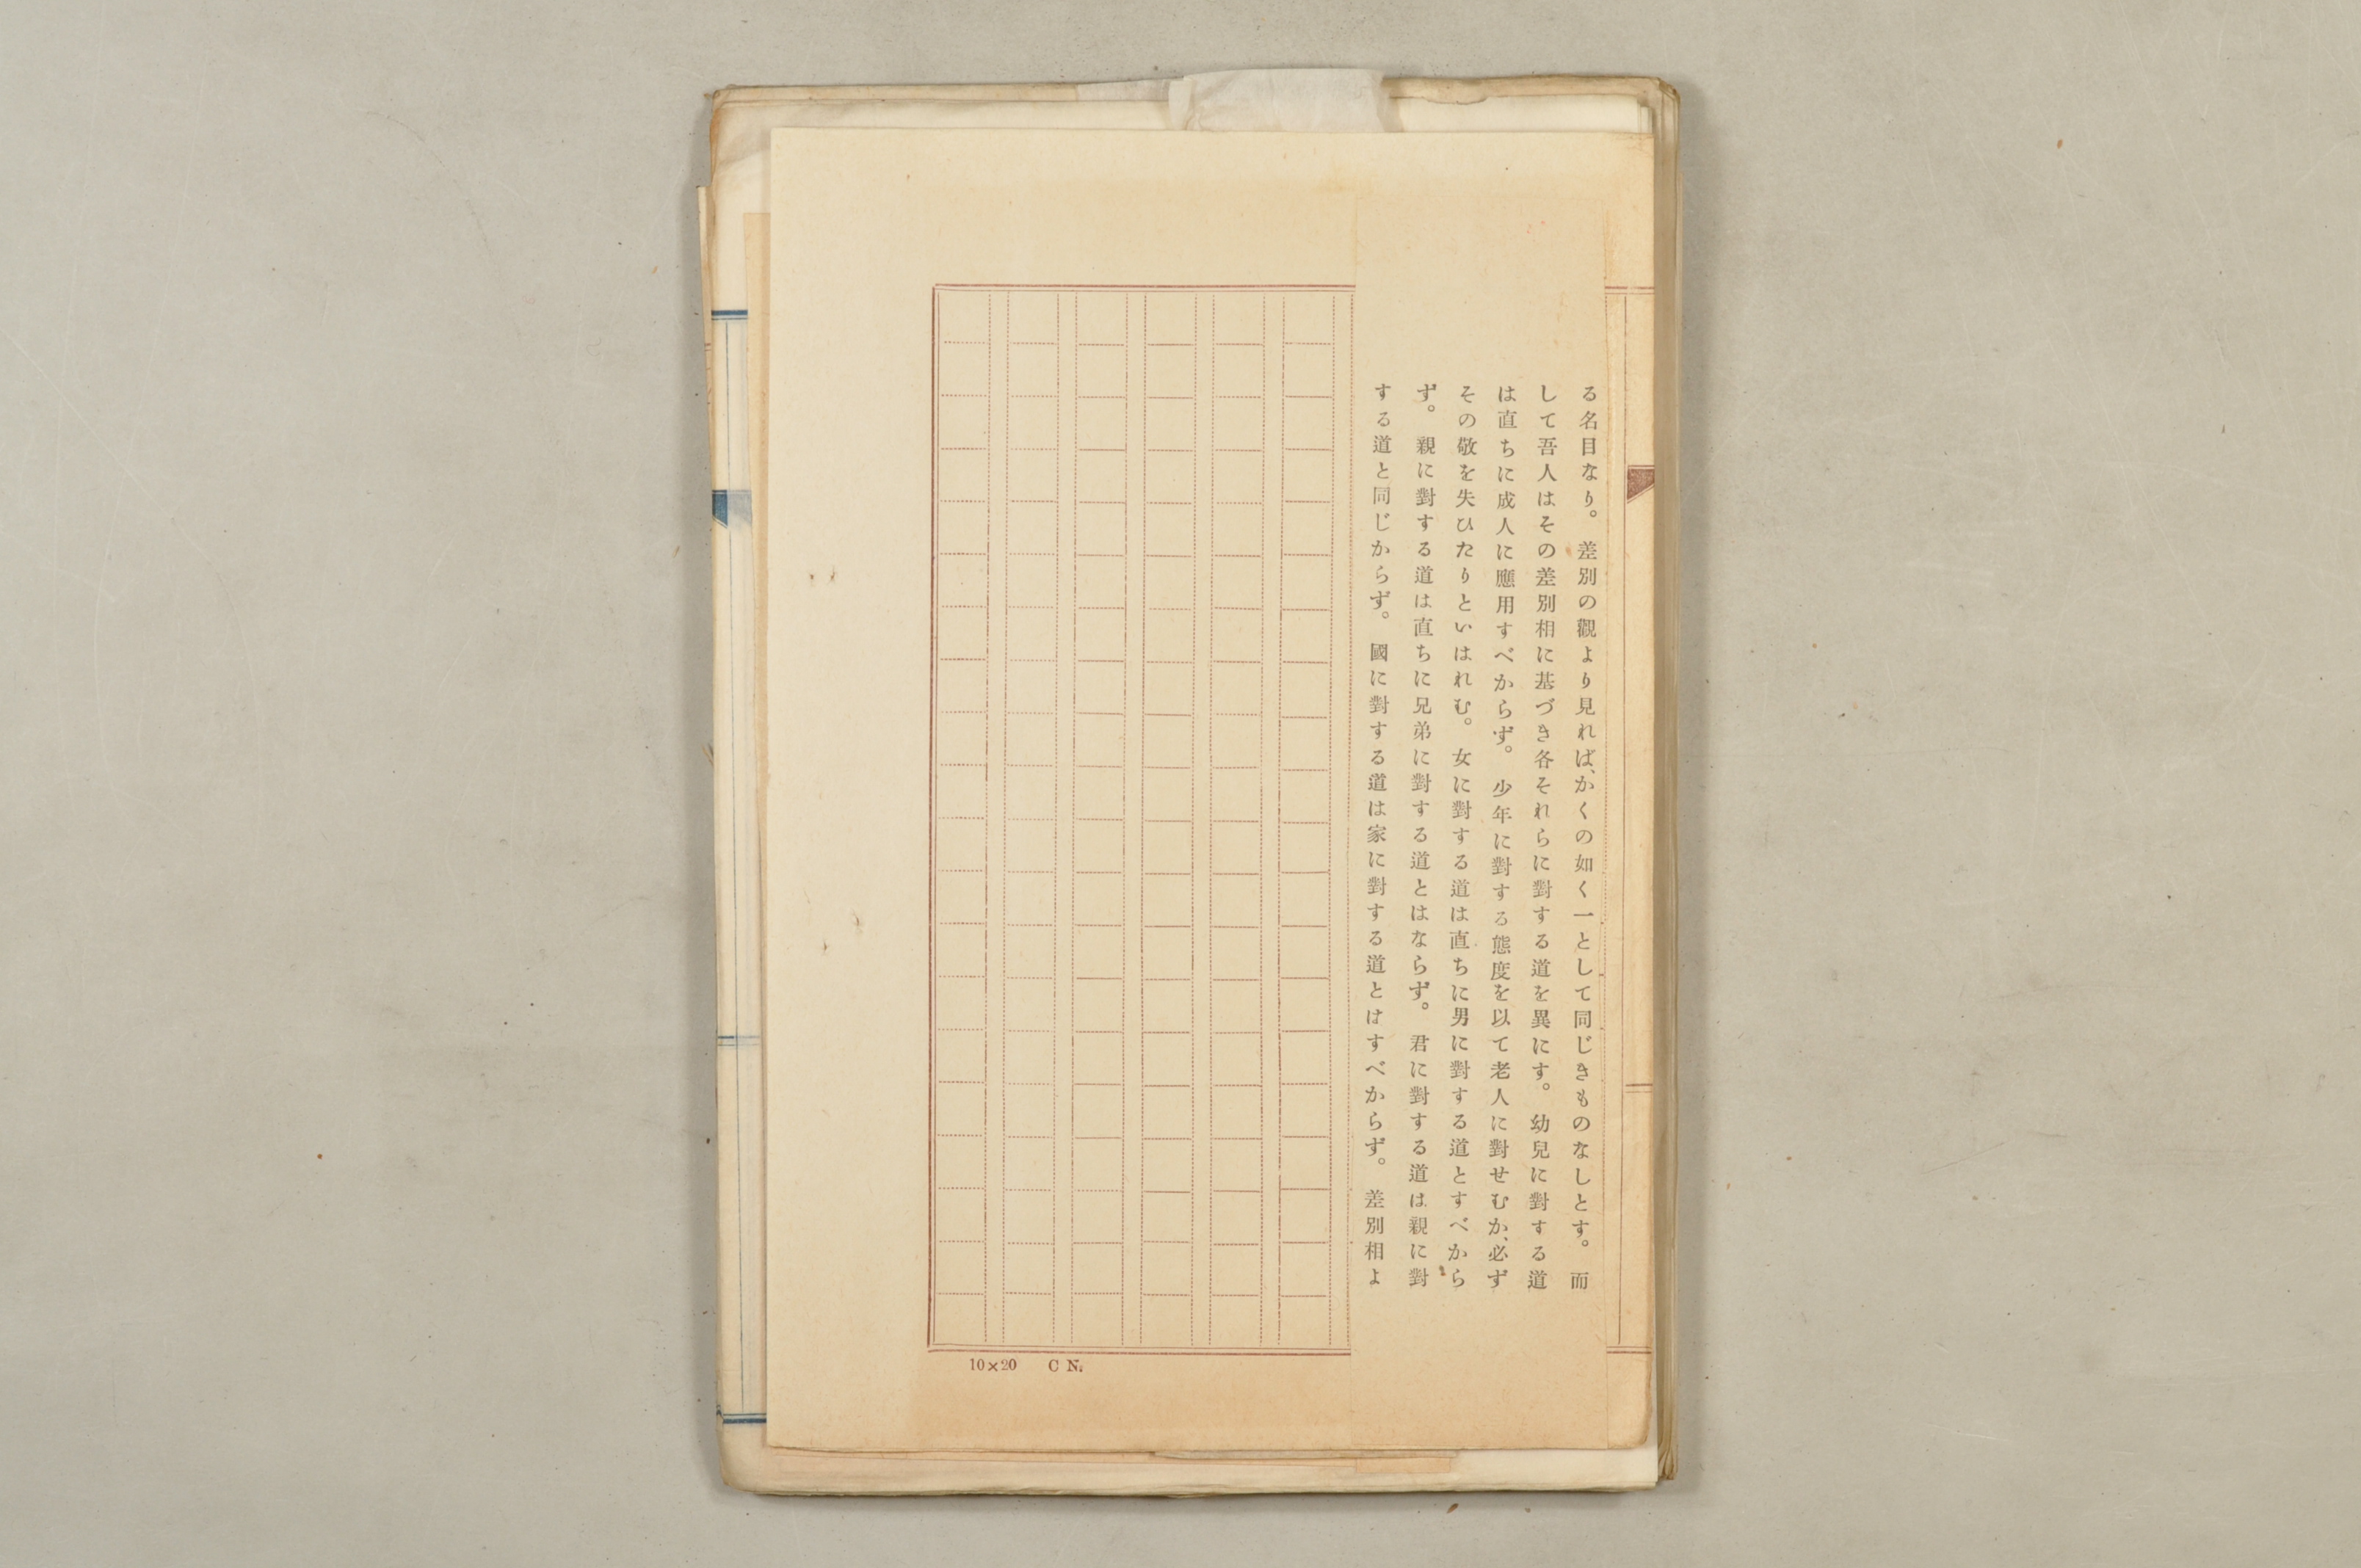 る名目なり。差別の觀より見れば、かくの如く一として同じきものなしとす。而
して吾人はその差別相に基づき各それらに對する道を異にす。幼兒に對する道
は直ちに成人に應用すべからず。少年に對する態度を以て老人に對せむか、必ず
その敬を失ひたりといはれむ。女に對する道は直ちに男に對する道とすべから
ず。親に對する道は直ちに兄弟に對する道とはならず。君に對する道は親に對
する道と同じからず。國に對する道は家に對する道とはすべからず。差別相よ
10×20 C №